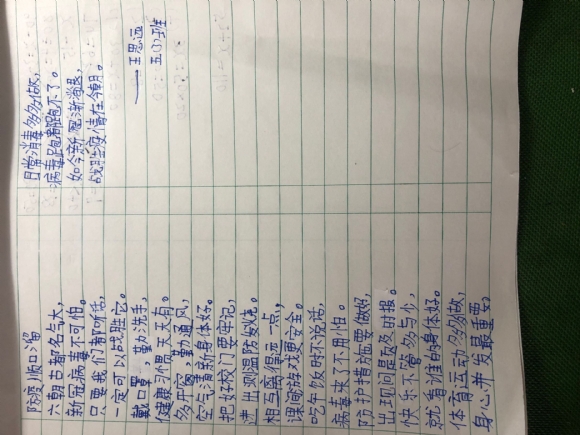 防疫顺口溜
六朝古都名气大，
新冠病毒不可怕。
只要我们都听话，
一定可以战胜它。
戴口罩，勤洗手，
健康习惯天天有。
多开窗，勤通风，
空气清新身体好。
把好校门要牢记，
进出测温防发烧。
相互离得远一点，
课间游戏更安全。
吃午饭时不说话，
病毒来了不用怕。
防护措施要做好，
出现问题及时报。
快乐不管多与少，
就看谁的身体好。
体育运动多多做，
身心并发最重要。
日常消毒多多做，
病毒跑都跑不了。
如今新冠渐消退，
战胜疫情在今朝。
——王思涵
五(3)班